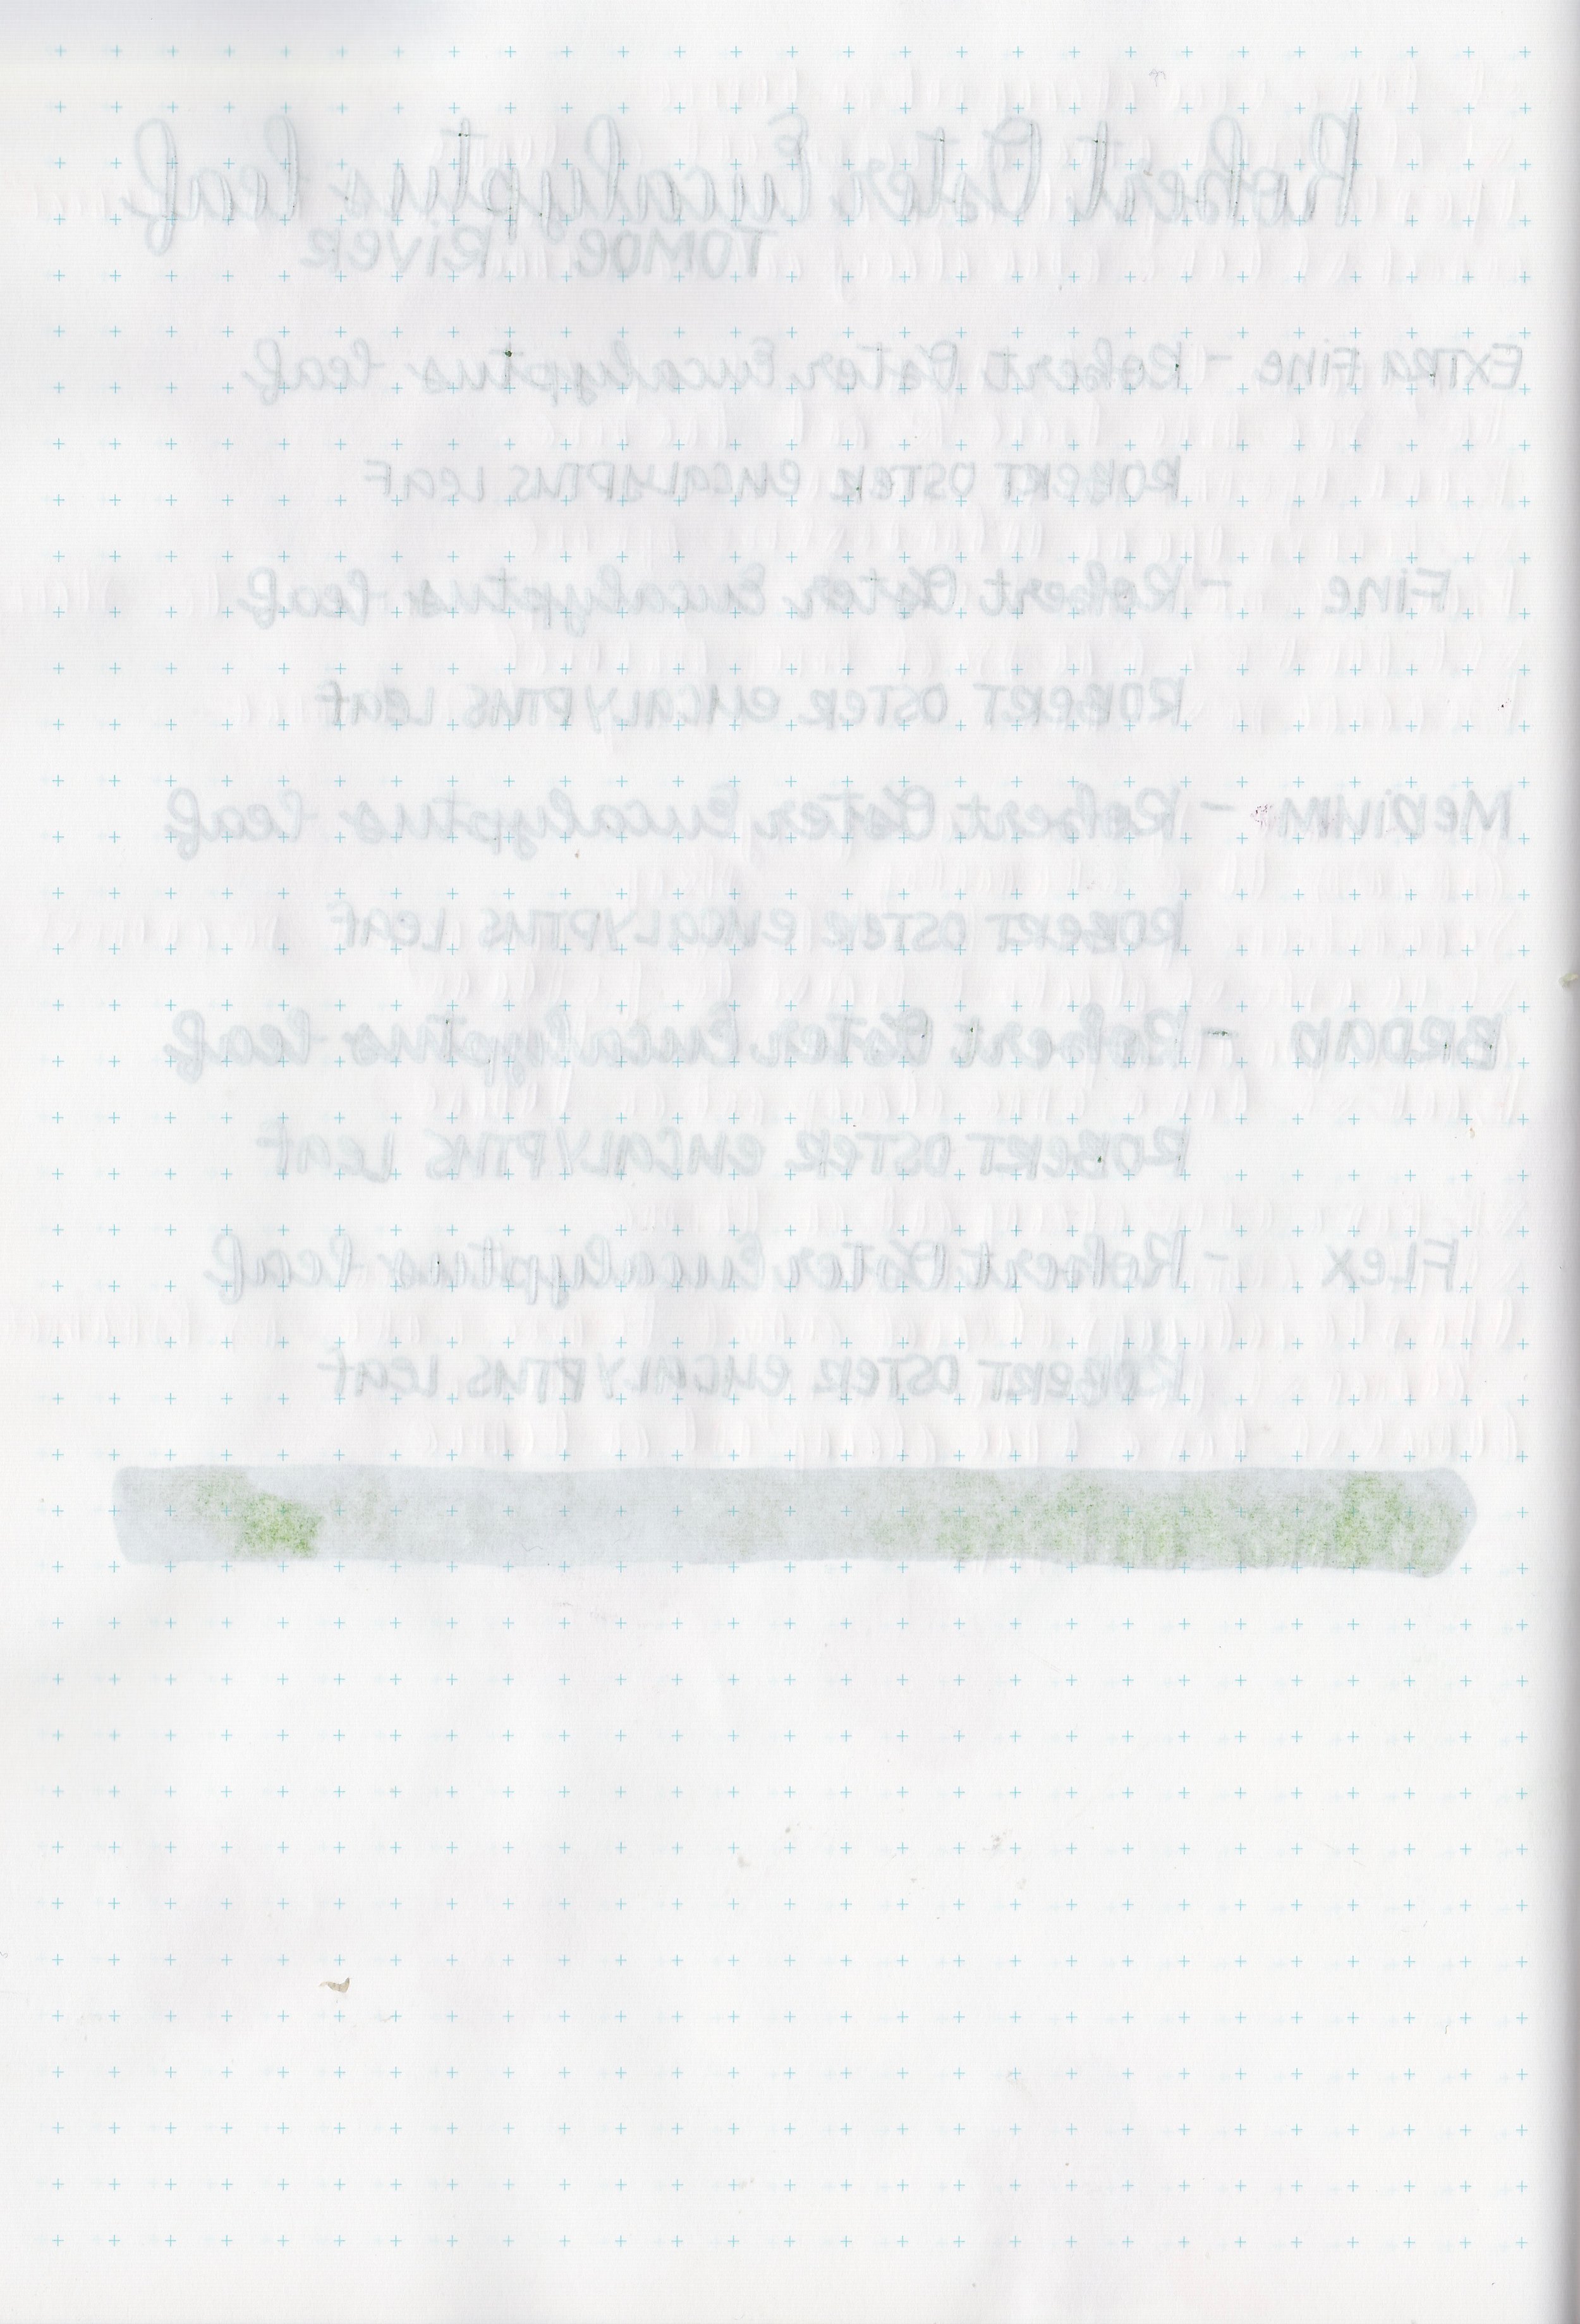 Robert Oster Eucalyptus Leaf
TOMOE RIVER
EXTRA FINE - Robert Oster Eucalyptus Leaf
ROBERT OSTER EUCALYPTUS LEAF
FINE - Robert Oster Eucalyptus Leaf
ROBERT OSTER EUCALYPTUS LEAF
MEDIUM - Robert Oster Eucalyptus Leaf
ROBERT OSTER EUCALYPTUS LEAF
BROAD - Robert Oster Eucalyptus Leaf
ROBERT OSTER EUCALYPTUS LEAF
FLEX - Robert Oster Eucalyptus Leaf
ROBERT OSTER EUCALYPTUS LEAF